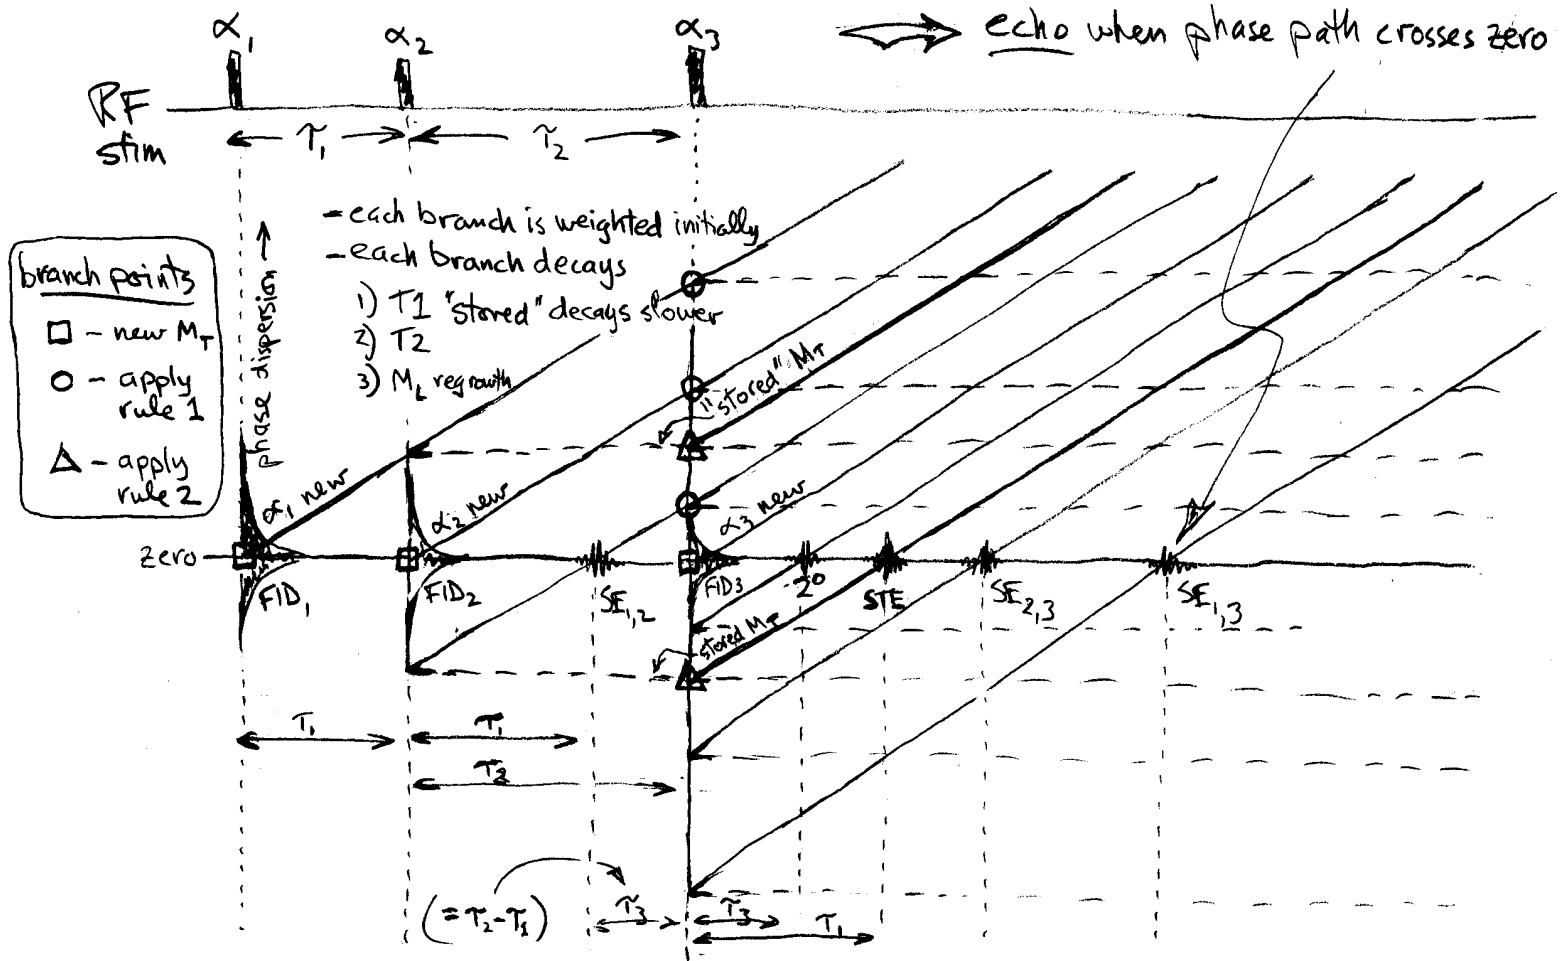 α₁
α₂
α₃
⇒ echo when phase path crosses zero
RF
stim
τ₁
τ₂
- each branch is weighted initially
- each branch decays
1) T1 "stored" decays slower
2) T2
3) M_L regrowth
branch points
□ - new M_T
○ - apply
rule 1
△ - apply
rule 2
phase dispersion →
"stored" M_T
α₁ new
α₂ new
α₃ new
zero
FID₁
FID₂
SE₁,₂
FID₃
2°
STE
SE₂,₃
SE₁,₃
stored M_T
τ₁
τ₁
τ₂
(= τ₂-τ₁)
τ₃
τ₃
τ₁